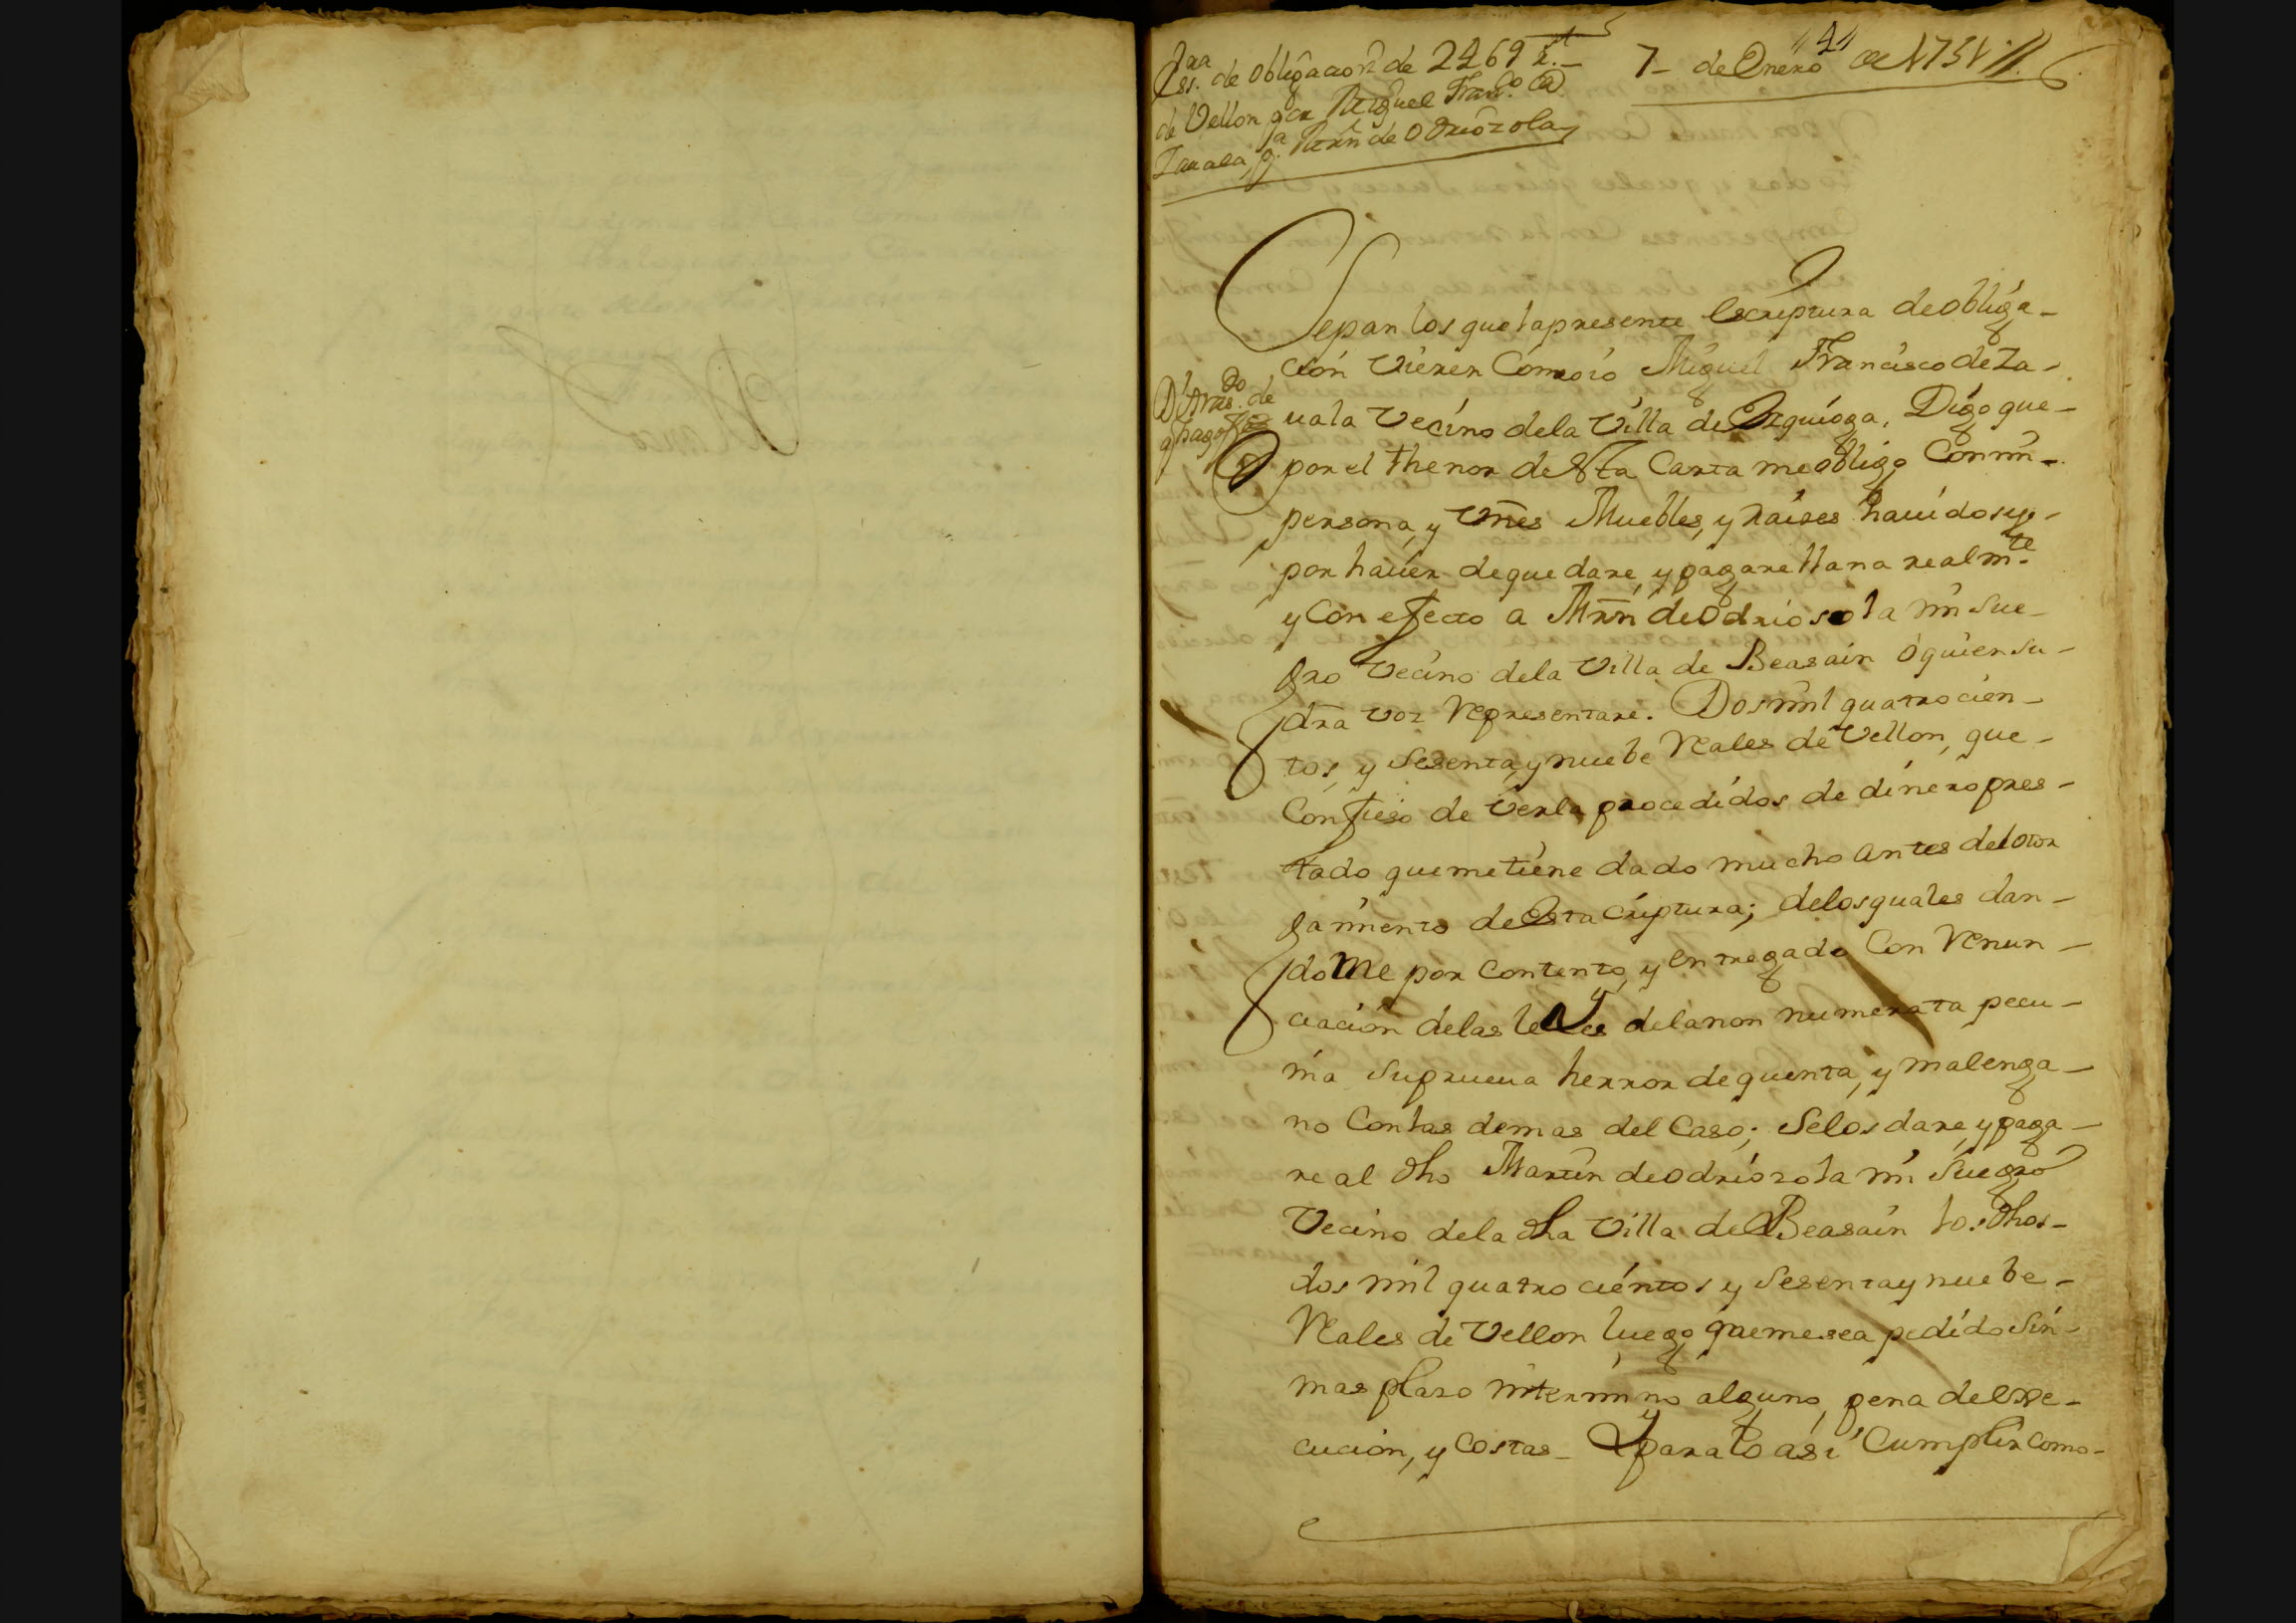 Essra. de obligacion de 2469 rs.
de Vellon por Miguel Franco. de
Zauala, pa. Mrn de Odriozola
7 de Enero de 1751
"1"
Sepan los que la presente escriptura de obliga-
cion vieren Como io Miguel Francisco de Za-
uala Vecino dela Villa de Ezquioga, Digo que-
por el thenor de esta Carta me obligo Con mi-
persona, y vnes Muebles, y raizes hauidos y-
por hauer de que dare, y pagare llana realmte.
y Con efecto a Mrn de Odriosola mi Sue-
gro Vecino dela Villa de Beasain o quien su-
dra voz Representare. Dos mil quatrocien-
tos, y Sesenta y nuebe Reales de Vellon, que-
Confieso deverla procedidos de dinero pres-
tado que me tiene dado mucho antes del otor
gamiento de esta Criptura; delos quales dan-
dome por Contento, y entregado Con Renun-
ciacion delas leyes dela non numerata pecu-
nia Su prueua herror de quenta, y mal enga-
no Con las demas del Caso; Selos dare, y paga-
re al dho Martin de Odriozola mi Suegro
Vecino dela dha Villa de Beasain los dhos-
dos mil quatrocientos y Sesenta y nuebe-
Reales de Vellon luego que me sea pedido Sin-
mas plazo ni termino alguno, pena de exe-
cucion, y costas- Y para lo asi Cumplir como-